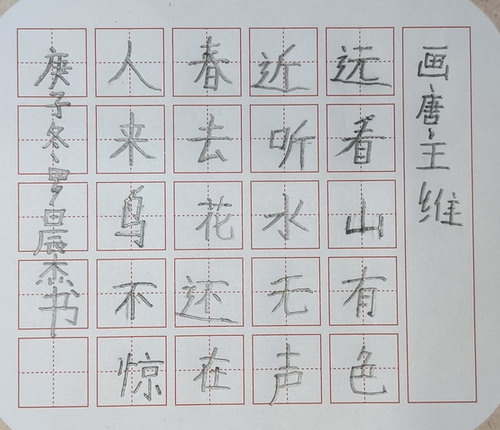 画唐、王维
远看山有色
近听水无声
春去花还在
人来鸟不惊
庚子冬、罗晨杰书